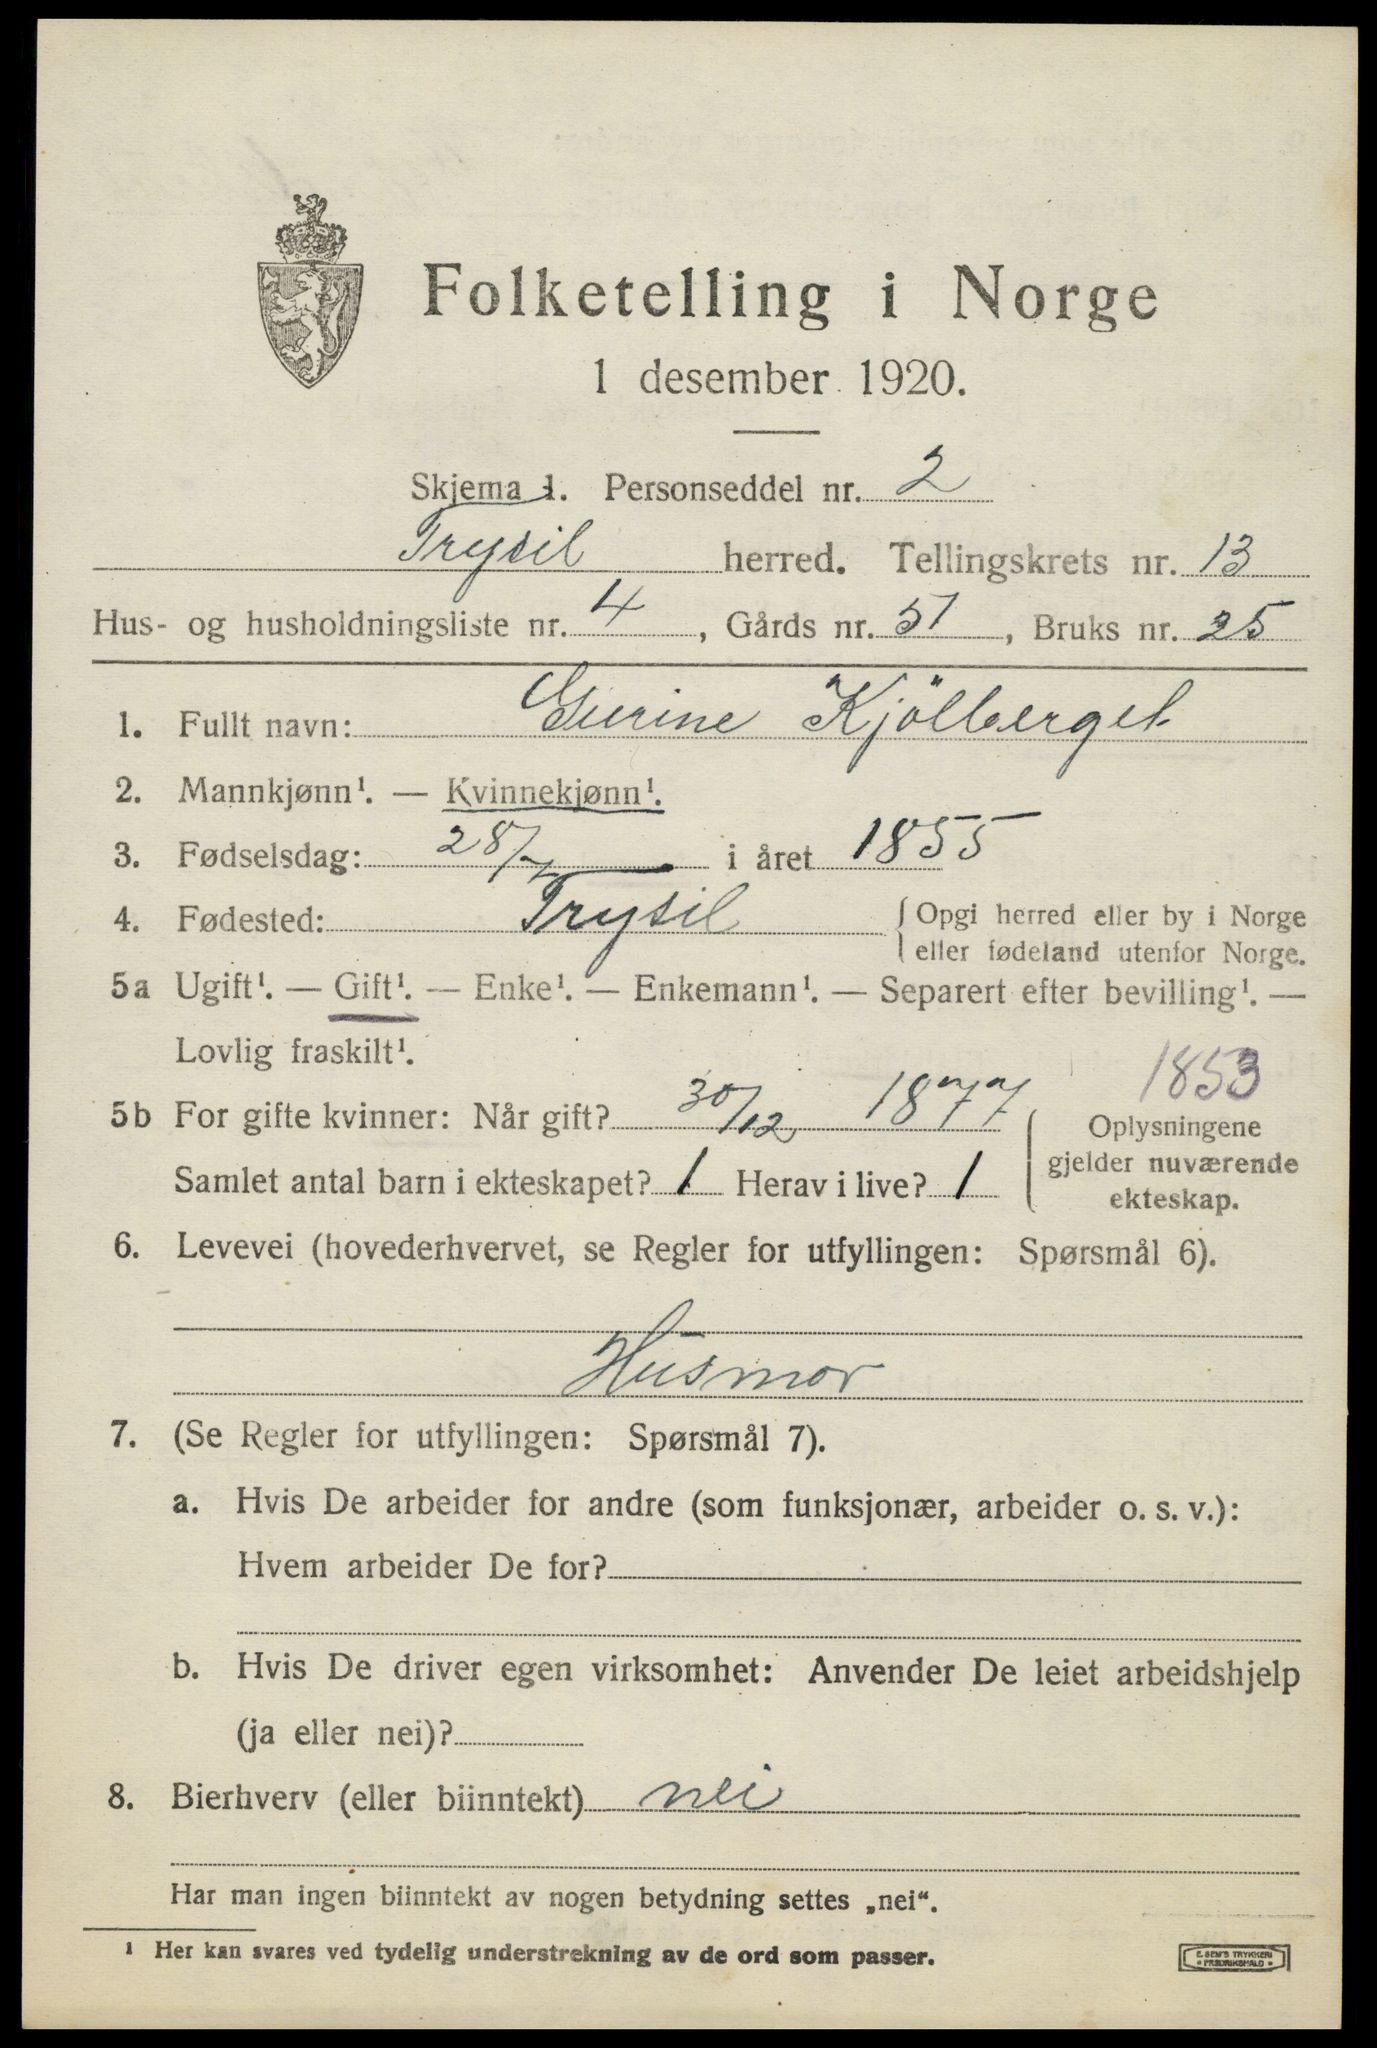 Folketelling i Norge
1 desember 1920.
Skjema 1. Personseddel nr. 2
Trysil herred. Tellingskrets nr. 13
Hus- og husholdningsliste nr. 4, Gårds nr. 51, Bruks nr. 25
1. Fullt navn: Gurine Kjölberget
2. Mannkjønn¹. — Kvinnekjønn¹.
3. Fødselsdag: 28/7 i året 1855
4. Fødested: Trysil { Opgi herred eller by i Norge
eller fødeland utenfor Norge.
5a Ugift¹. — Gift¹. — Enke¹. — Enkemann¹. — Separert efter bevilling¹. —
Lovlig fraskilt¹.
1853
5b For gifte kvinner: Når gift? 30/12 1877
Samlet antal barn i ekteskapet? 1 Herav i live? 1
Oplysningene
gjelder nuværende
ekteskap.
6. Levevei (hovederhvervet, se Regler for utfyllingen: Spørsmål 6).
Husmor
7. (Se Regler for utfyllingen: Spørsmål 7).
a. Hvis De arbeider for andre (som funksjonær, arbeider o. s. v.):
Hvem arbeider De for?
b. Hvis De driver egen virksomhet: Anvender De leiet arbeidshjelp
(ja eller nei)?
8. Bierhverv (eller biinntekt) nei
Har man ingen biinntekt av nogen betydning settes „nei“.
¹ Her kan svares ved tydelig understrekning av de ord som passer.
E. SEM'S TRYKKERI
FREDRIKSHALD